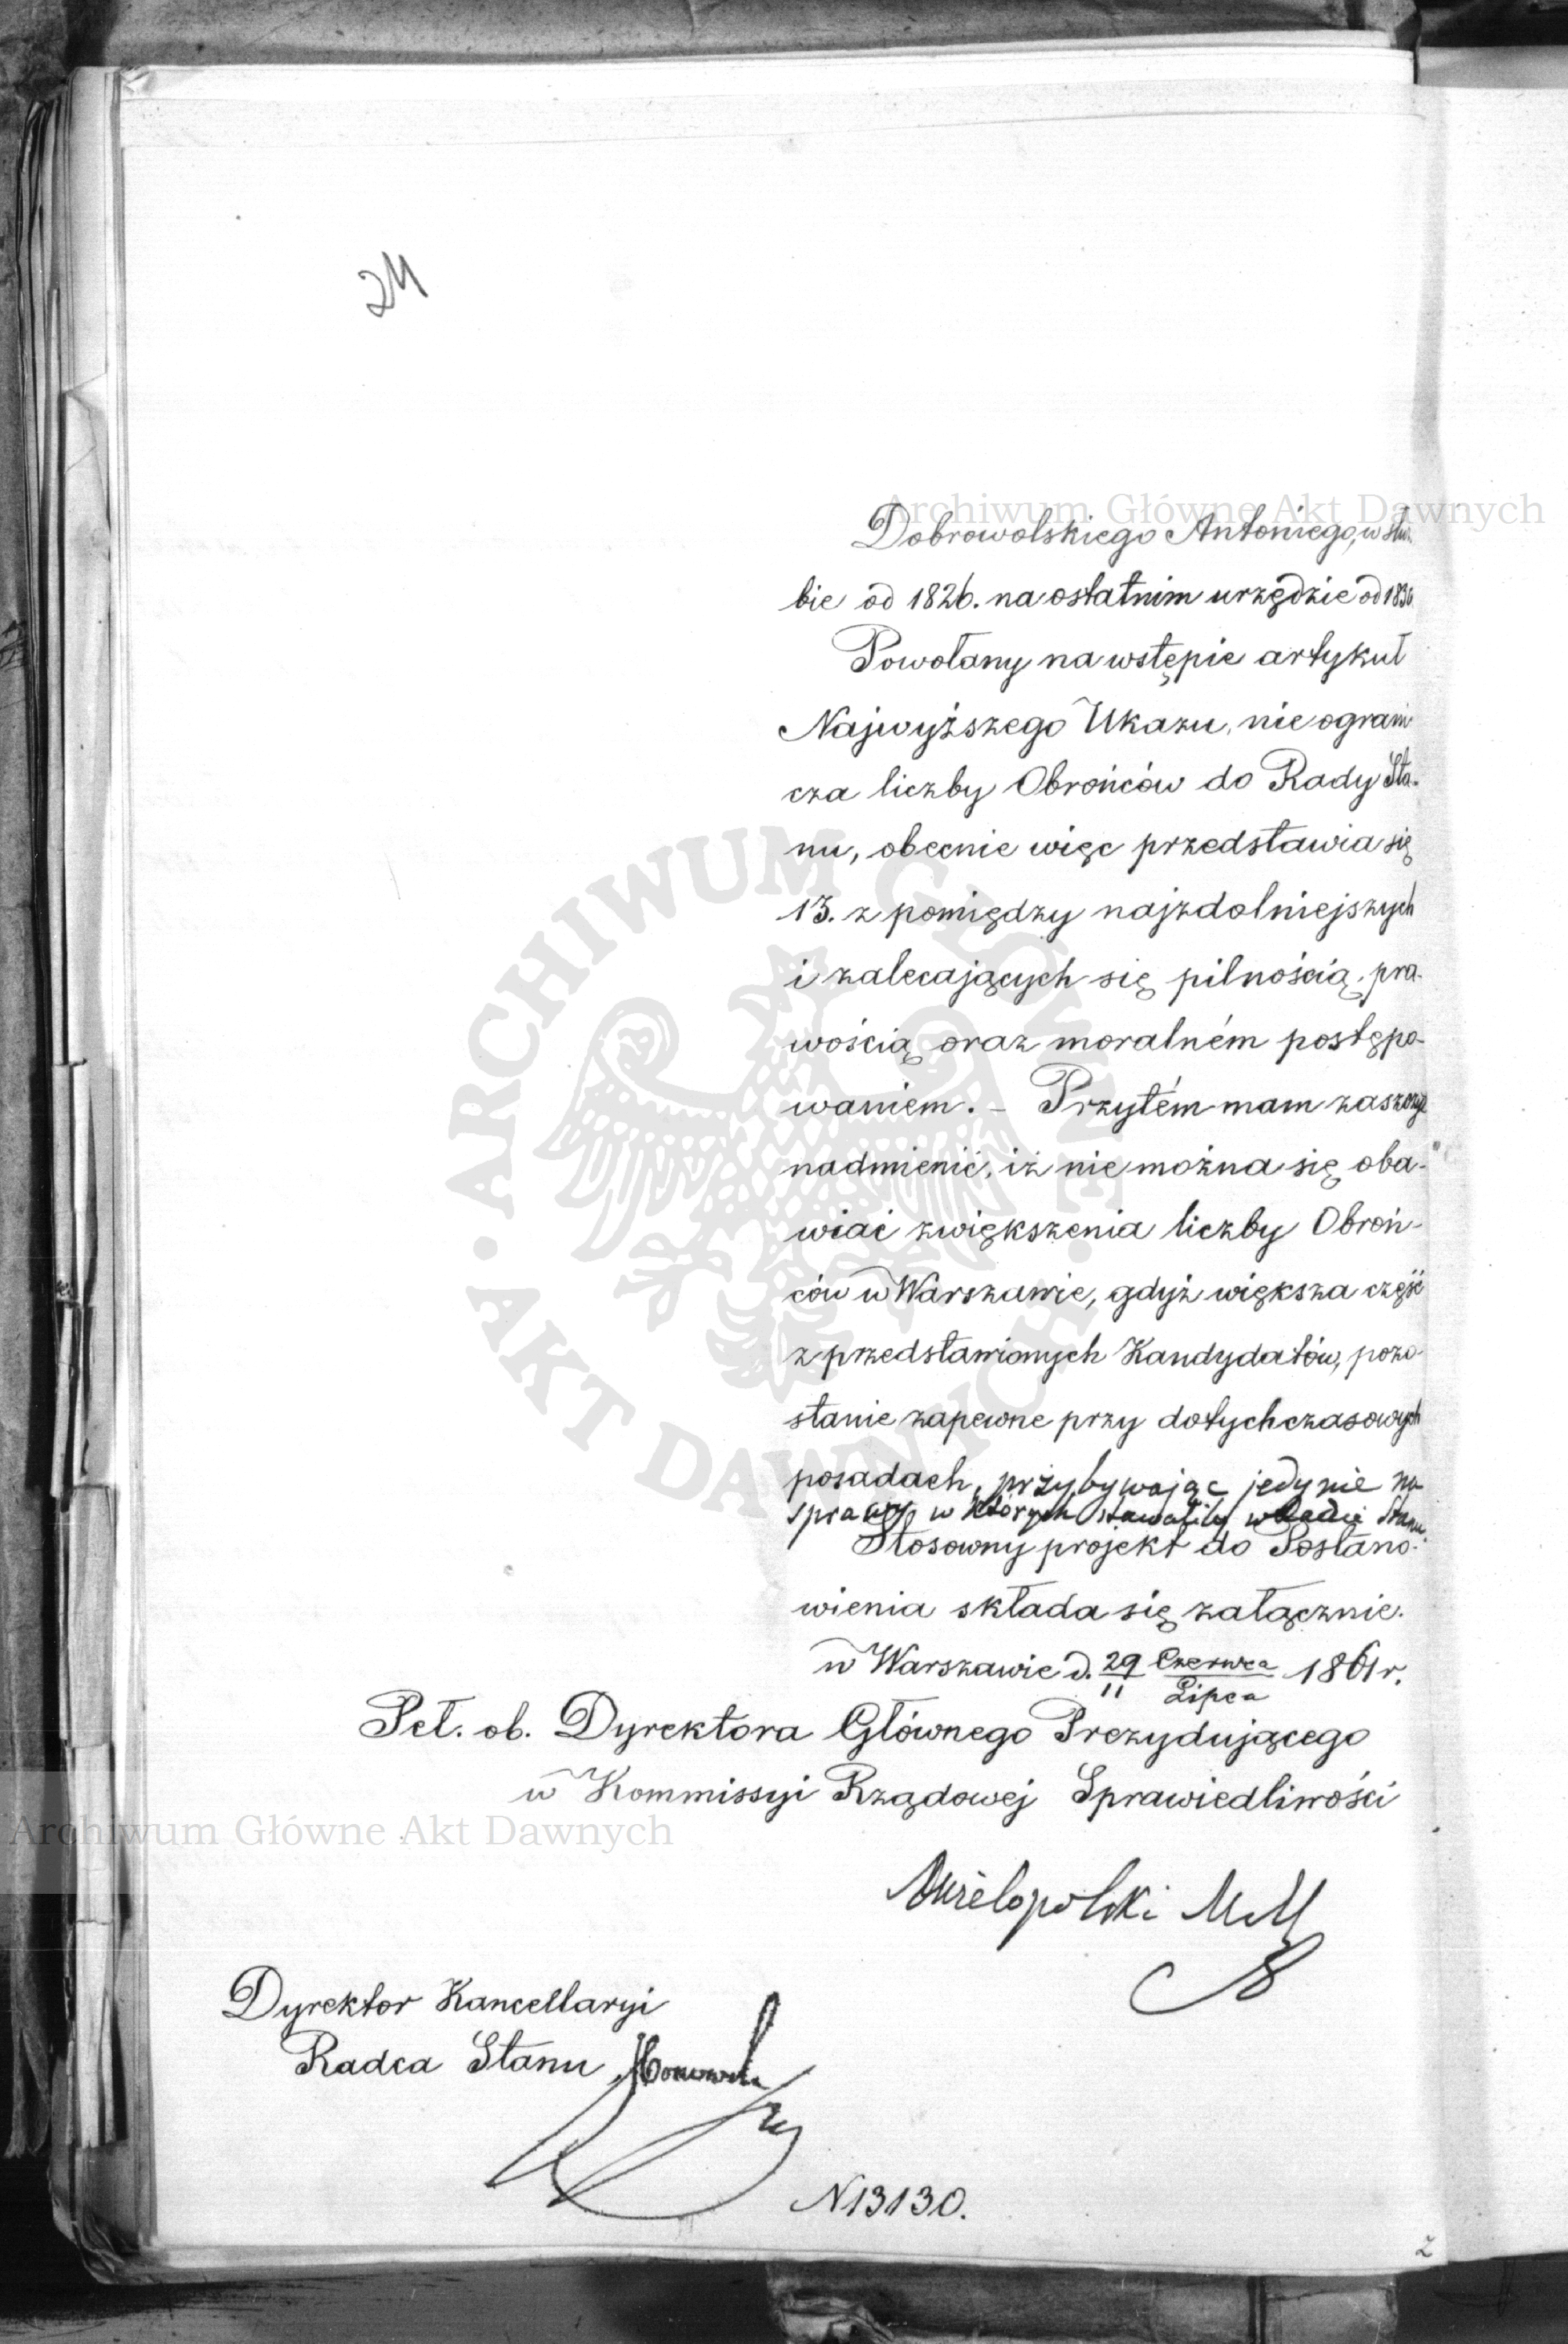 24
Dobrowolskiego Antoniego, w służ-
bie od 1826. na ostatnim urzędzie od 1836
Powołany na wstępie artykuł
Najwyższego Ukazu, nie ograni
cza liczby Obrońców do Rady Sta-
nu, obecnie więc przedstawia się
13. z pomiędzy najzdolniejszych
i zalecających się pilnością, pra-
wością oraz moralném postępo-
waniem. – Przytém mam zaszczyt
nadmienić, iż nie można się oba-
wiać zwiększenia liczby Obroń-
ców w Warszawie, gdyż większa część
z przedstawionych Kandydatów, pozo-
stanie zapewne przy dotychczasowych
posadach, przybywając jedynie na
sprawy w których stawaliby w Radzie Stanu.
Stosowny projekt do Postano-
wienia składa się załącznie.
w Warszawie d. 29 Czerwca / 11 Lipca 1861 r.
Peł. ob. Dyrektora Głównego Prezydującego
w Kommissyi Rządowej Sprawiedliwości
Wielopolski
Dyrektor Kancellaryi
Radca Stanu
N 13130.
Archiwum Główne Akt Dawnych
Archiwum Główne Akt Dawnych
ARCHIWUM GŁÓWNE AKT DAWNYCH